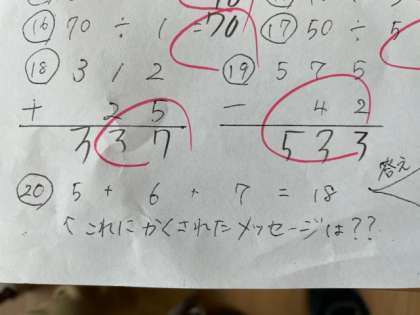 ⑯ 70 ÷ 1 = 70 ⑰ 50 ÷ 5
⑱ 312 ⑲ 575
+ 25 - 42
337 533
⑳ 5 + 6 + 7 = 18 答え
↑これにかくされたメッセージは??